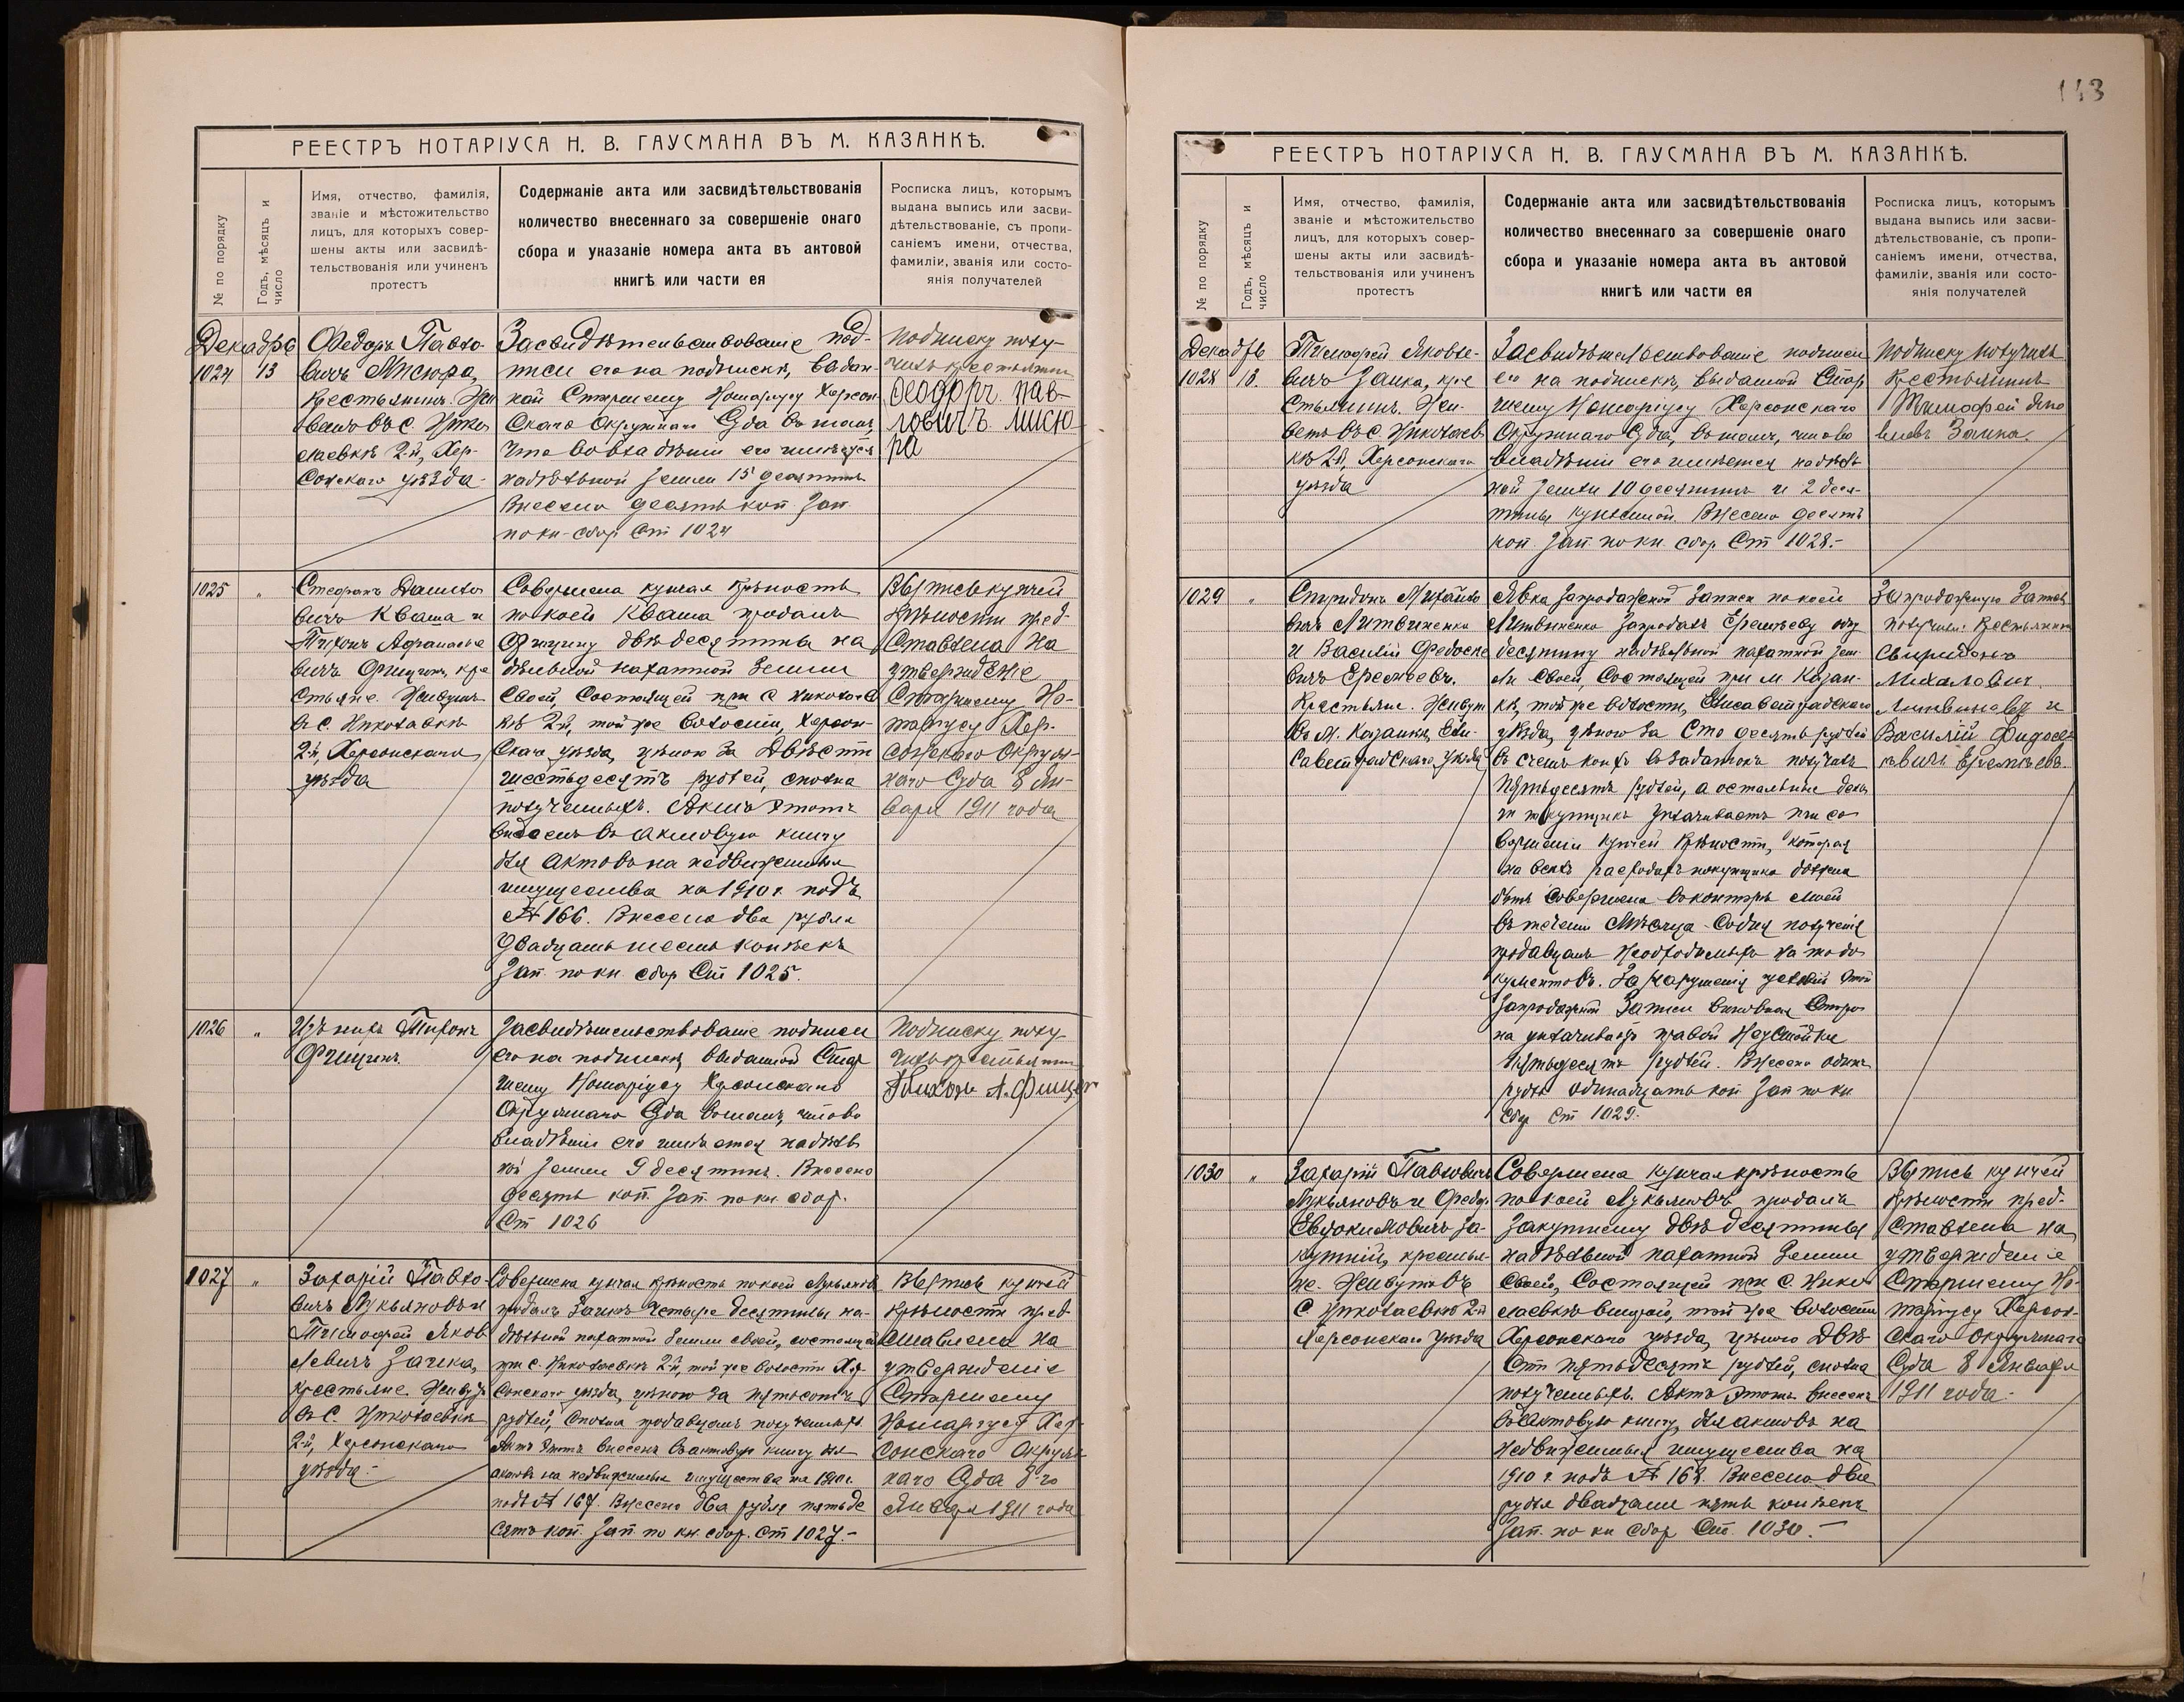 РЕЕСТРЪ НОТАРІУСА Н. В. ГАУСМАНА ВЪ М. КАЗАНКѢ.
№ по порядку
Годъ, мѣсяцъ и число
Имя, отчество, фамилія,
званіе и мѣстожительство
лицъ, для которыхъ совер-
шены акты или засвидѣ-
тельствованія или учиненъ
протестъ
Содержаніе акта или засвидѣтельствованія
количество внесеннаго за совершеніе онаго
сбора и указаніе номера акта въ актовой
книгѣ или части ея
Росписка лицъ, которымъ
выдана выпись или засви-
дѣтельствованіе, съ пропи-
саніемъ имени, отчества,
фамиліи, званія или состо-
янія получателей
Декабрь
1024 13
Федоръ Павло-
вичъ Мисюра,
крестьянинъ. Жи
ветъ въ с. Нико
лаевкѣ 2й, Хер-
сонскаго уѣзда-
Засвидѣтельствованіе под-
писи его на подпискѣ, выдан-
ной Старшему Нотаріусу Херсон
скаго Окружнаго Суда въ томъ,
что во владѣніи его имѣется
надѣльной земли 15 десятинъ
Внесено десять коп Зап
по кн. сбор Ст 1024
Подписку полу-
чилъ крестьянин
Феодоръ. Пав-
ловичъ Мисю
ра
1025 "
Стефанъ Данило
вичъ Кваша и
Тихонъ Афанасье
вичъ Фищинъ, кре
стьяне. Живутъ
въ с. Николаевкѣ
2й, Херсонскаго
уѣзда
Совершена купчая крѣпость
по коей Кваша продалъ
Фищину двѣ десятины на
дѣльной пахатной земли
своей, состоящей при с Николаев
кѣ 2й, той же волости, Херсон-
скаго уѣзда, цѣною за двѣсти
шестьдесятъ рублей, сполна
полученныхъ. Актъ этотъ
внесенъ въ актовую книгу
для актовъ на недвижимыя
имущества на 1910 г. подъ
№ 166. Внесено два рубля
двадцать шесть копѣекъ
Зап. по кн. сбор Ст 1025.
Выпись купчей
крѣпости пред-
ставлена на
утвержденіе
Старшему Но-
таріусу Хер-
сонскаго Окруж-
наго Суда 8 Ян-
варя 1911 года
1026 "
Изъ нихъ Тихонъ
Фищинъ.
Засвидѣтельствованіе подписи
его на подпискѣ, выданной Стар
шему Нотаріусу Херсонскаго
Окружнаго Суда въ томъ, что во
владѣніи его имѣется надѣль
ной земли 9 десятинъ. Внесено
десять коп. Зап. по кн. сбор.
Ст 1026
Подписку полу
чилъ крестьянин
Тихон А. Фищин
1027 "
Захарій Павло-
вичъ Лукьяновъ и
Тимофей Яков
левичъ Заика,
крестьяне. Живутъ
въ с. Николаевкѣ
2й, Херсонскаго
уѣзда.-
Совершена купчая крѣпость по коей Лукьяновъ
продалъ Заикѣ четыре десятины на-
дѣльной пахатной земли своей, состоящей
при с. Николаевкѣ 2й, той же волости Хер-
сонскаго уѣзда, цѣною за пятьсотъ
рублей, сполна продавцемъ полученныхъ.
Актъ этотъ внесенъ въ актовую книгу для
актовъ на недвижимыя имущества на 1910 г.
подъ № 167. Внесено два рубля пятьде
сятъ коп. Зап по кн. сбор. Ст 1027.-
Выпись купчей
крѣпости пред
ставлена на
утвержденіе
Старшему
Нотаріусу Хер
сонскаго Окруж
наго Суда 8-го
Января 1911 года
143
РЕЕСТРЪ НОТАРІУСА Н. В. ГАУСМАНА ВЪ М. КАЗАНКѢ.
№ по порядку
Годъ, мѣсяцъ и число
Имя, отчество, фамилія,
званіе и мѣстожительство
лицъ, для которыхъ совер-
шены акты или засвидѣ-
тельствованія или учиненъ
протестъ
Содержаніе акта или засвидѣтельствованія
количество внесеннаго за совершеніе онаго
сбора и указаніе номера акта въ актовой
книгѣ или части ея
Росписка лицъ, которымъ
выдана выпись или засви-
дѣтельствованіе, съ пропи-
саніемъ имени, отчества,
фамиліи, званія или состо-
янія получателей
Декабрь
1028 13
Тимофей Яковле-
вичъ Заика, кре
стьянинъ. Жи-
ветъ въ с. Николаев
кѣ 2й, Херсонскаго
уѣзда
Засвидѣтельствованіе подписи
его на подпискѣ, выданной Стар
шему Нотаріусу Херсонскаго
Окружнаго Суда, въ томъ, что во
владѣніи его имѣется надѣль
ной земли 10 десятинъ и 2 деся-
тины купленной. Внесено десять
коп. Зап. по кн. сбор Ст 1028.-
Подписку получилъ
Крестьянинъ
Тимофей Яко
влевъ Заика
1029 "
Спиридонъ Михайло
вичъ Литвиненко
и Василій Федосее
вичъ Еремѣевъ.
Крестьяне. Живутъ
въ м. Казанкѣ, Ели-
саветградскаго уѣзда
Явка запродажной записи по коей
Литвиненко запродалъ Еремѣеву одну
десятину надѣльной пахатной зем-
ли своей, состоящей при м Казан-
кѣ, той же волости, Елисаветградскаго
уѣзда, цѣною за сто десять рублей
въ счетъ коихъ въ задатокъ получилъ
пятьдесятъ рублей, а остальные день
ги покупщикъ уплачиваетъ при со
вершеніи купчей крѣпости, которая
на всѣхъ расходахъ покупщика должна
быть совершена въ конторѣ моей
въ теченіи мѣсяца со дня полученія
продавцемъ необходимыхъ на то до
кументовъ. За нарушенія условій этой
запродажной записи виновная сторо
на уплачиваетъ правой неустойки
пятьдесятъ рублей. Внесено одинъ
рубль одинадцать коп Зап по кн
сбор Ст 1029.-
Запродажную запись
получили: Крестьяне
Свиридонъ
Михаловичъ
Литвиненко и
Василій Фидосе
евичъ Еремѣевъ.
1030 "
Захарій Павловичъ
Лукьяновъ и Федоръ
Евдокимовичъ За-
купній, крестья-
не. Живутъ въ
с. Николаевкѣ 2й
Херсонскаго уѣзда
Совершена купчая крѣпость
по коей Лукьяновъ продалъ
Закупнему двѣ десятины
надѣльной пахатной земли
своей, состоящей при с. Нико
лаевкѣ второй, той же волости
Херсонскаго уѣзда, цѣною двѣ-
сти пятьдесятъ рублей, сполна
полученныхъ. Актъ этотъ внесенъ
въ актовую книгу для актовъ на
недвижимыя имущества на
1910 г. подъ № 168. Внесено два
рубля двадцать пять копѣекъ
Зап. по кн сбор Ст. 1030.-
Выпись купчей
крѣпости пред-
ставлена на
утвержденіе
Старшему Но-
таріусу Херсон-
скаго Окружнаго
Суда 8 Января
1911 года.-